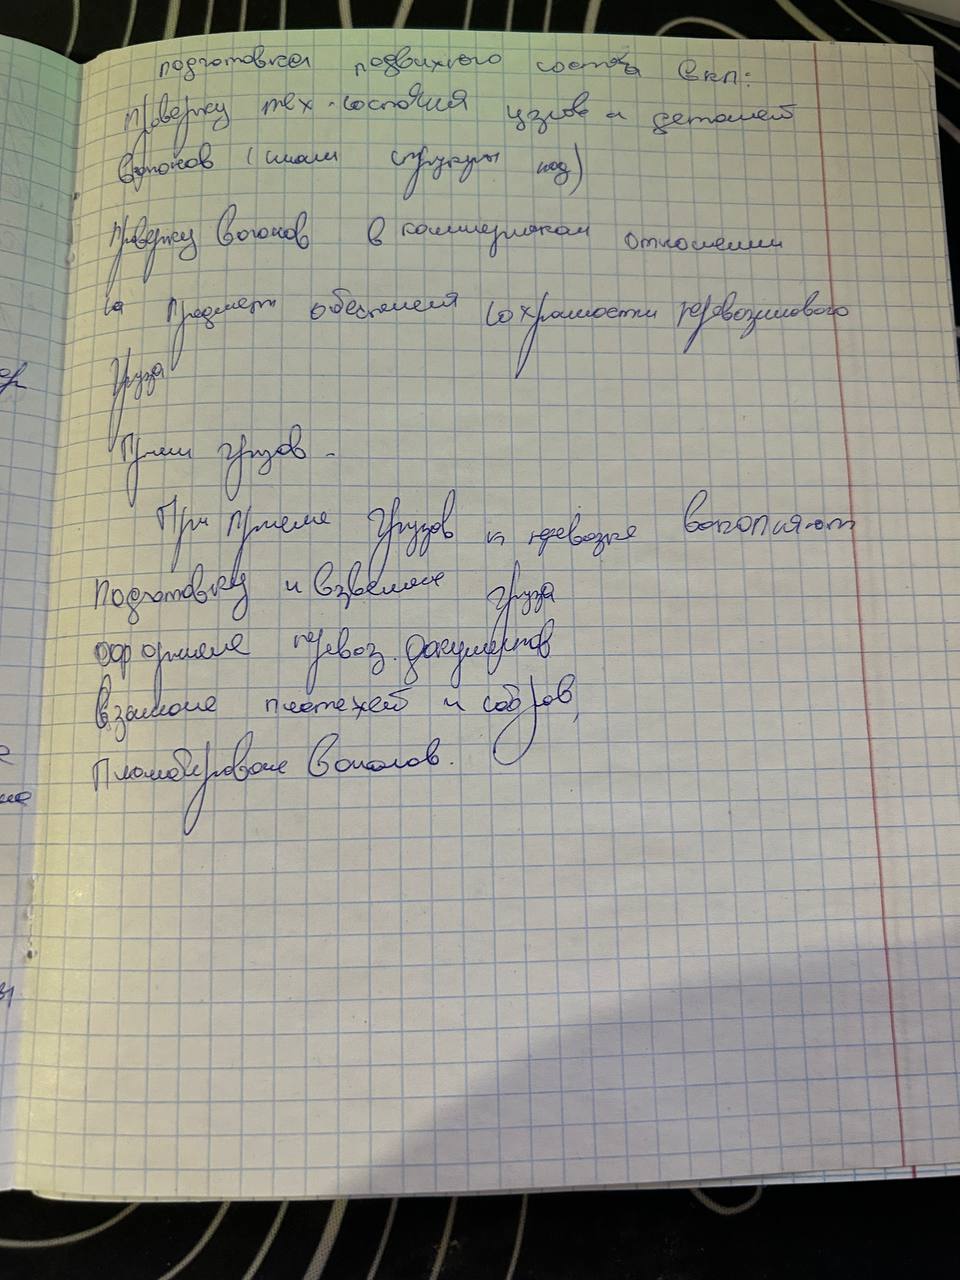 подготовка подвижного состава вкл:
Проверку тех. состояния узлов и деталей
вагонов (силами структуры
Проверку вагонов в коммерческом отношении
на предмет обеспечения сохранности перевозимого
груза
Прием грузов -
При приеме грузов к перевозке выполняют
Подготовку и взвешение груза
оформление перевоз. документов
взимание платежей и сборов,
Пломбирование вагонов.